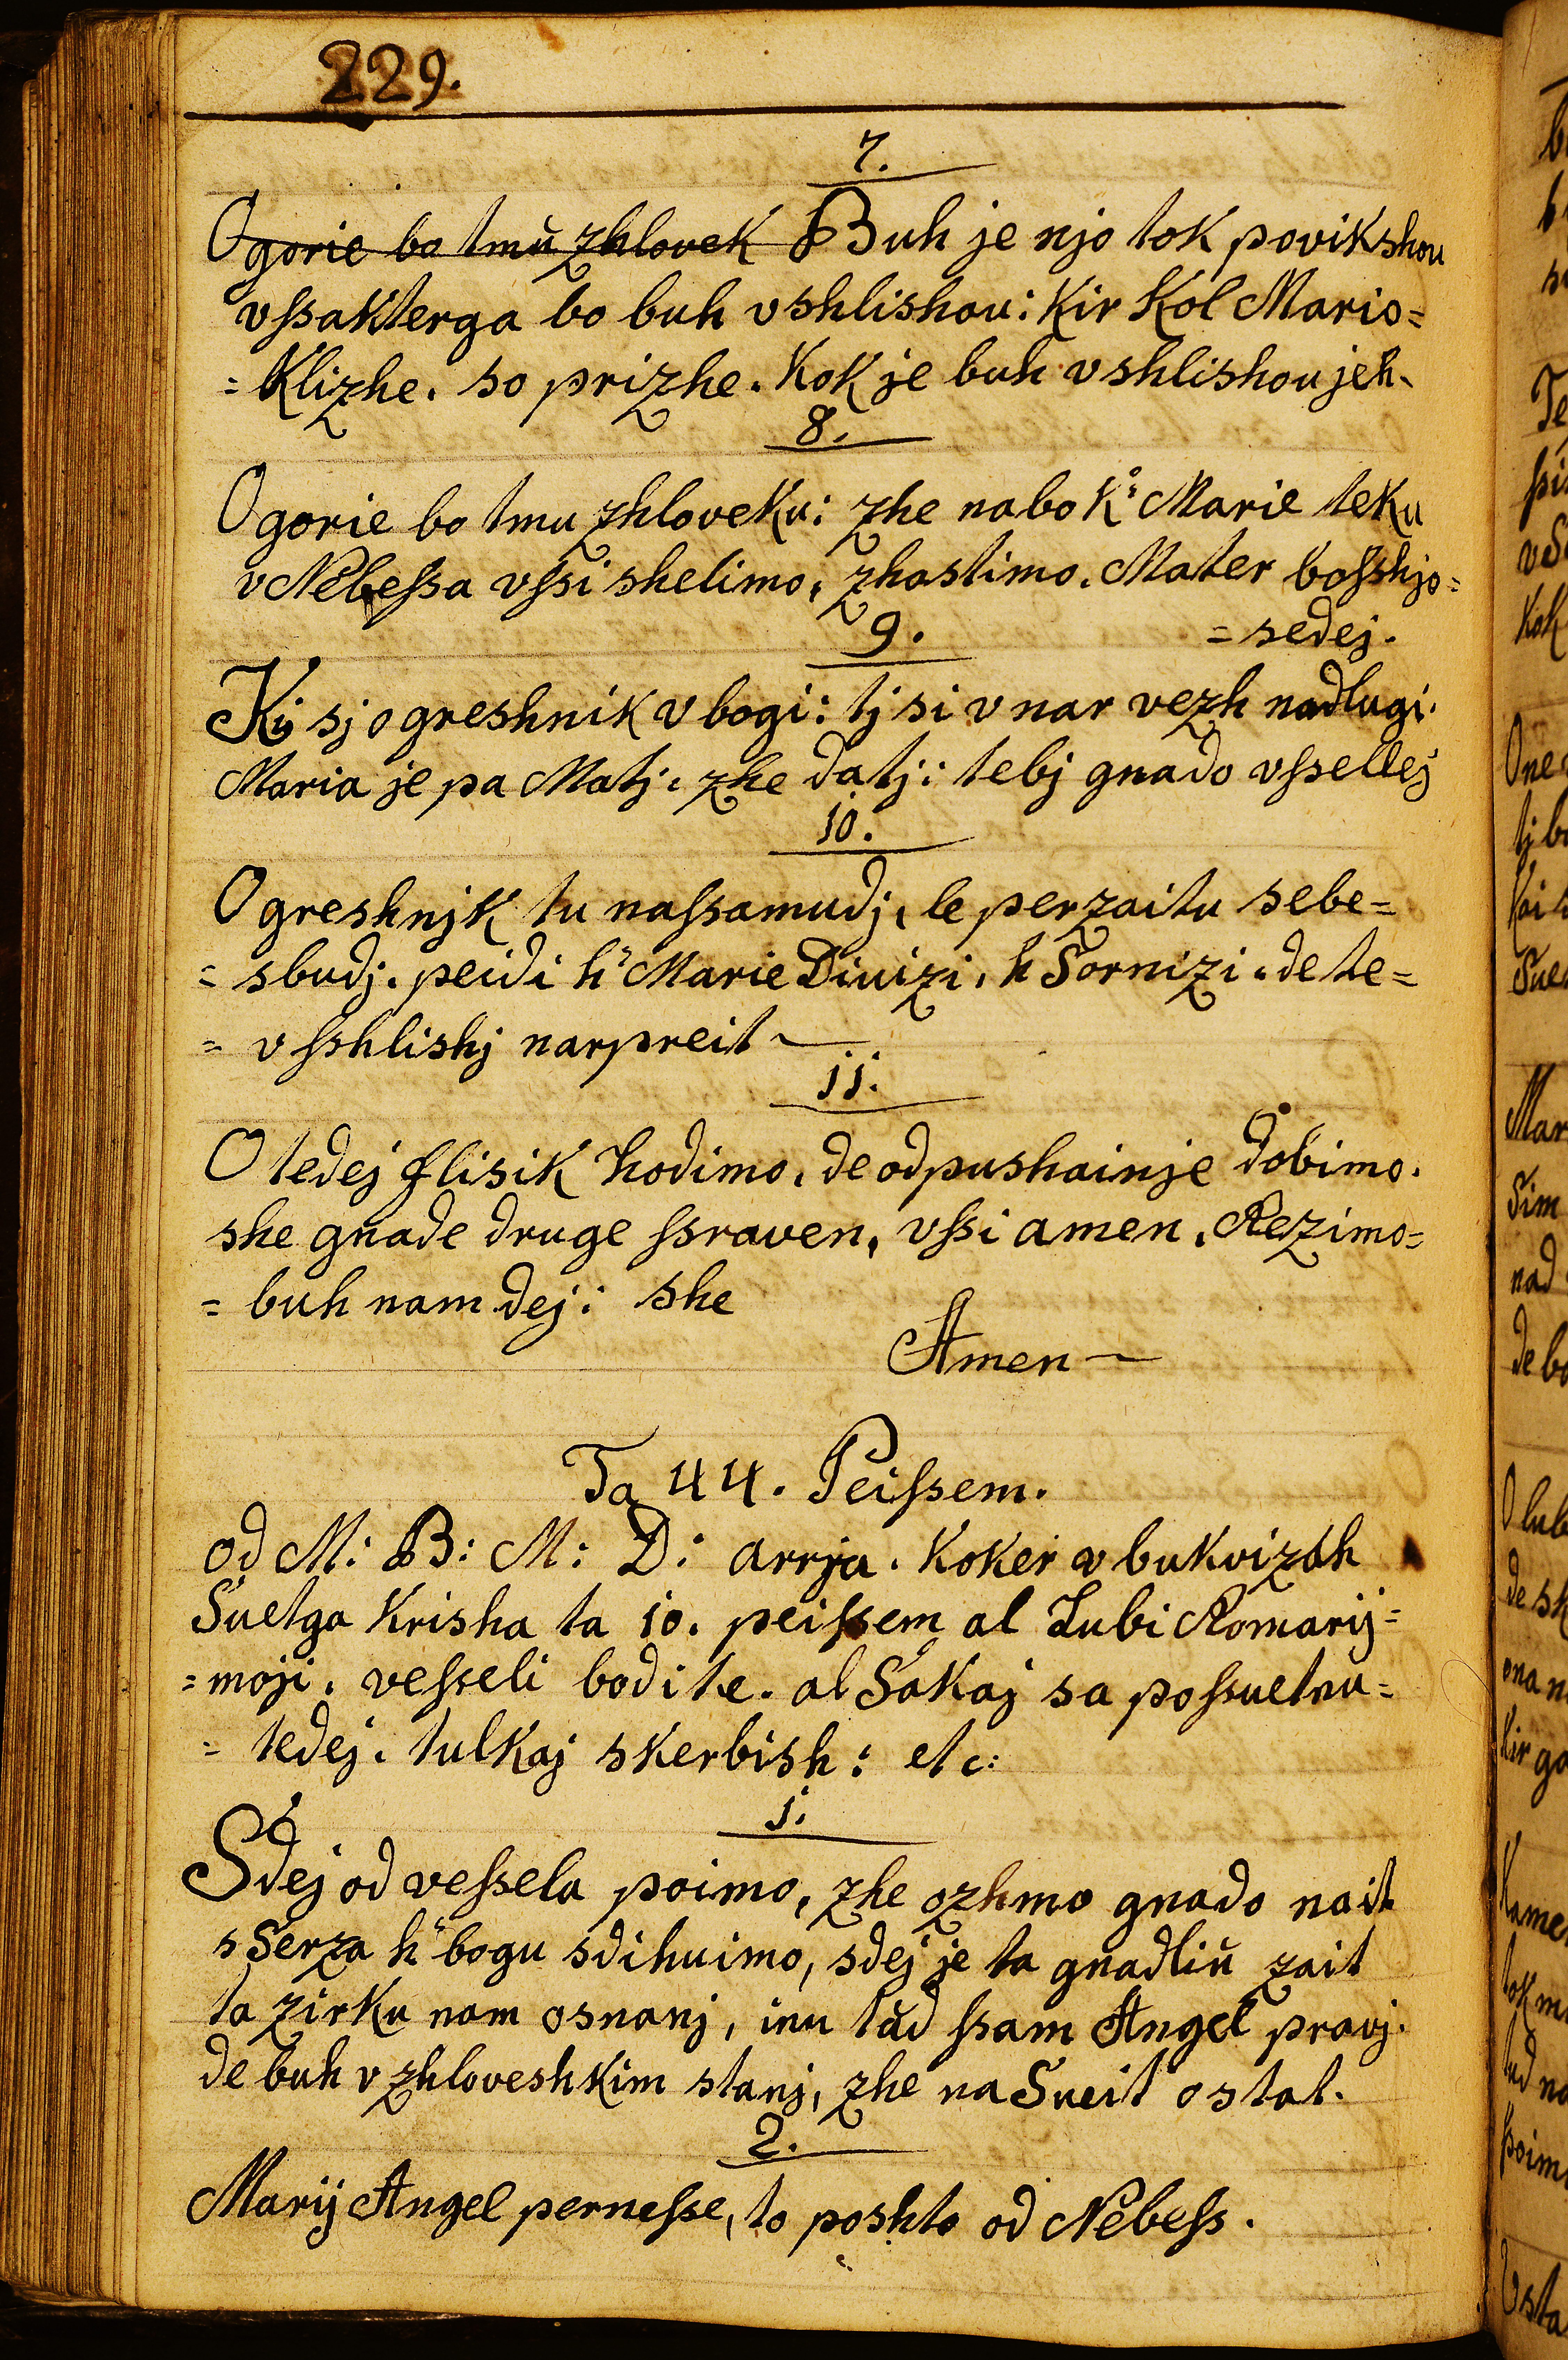 229.
7.
O gorie bo tmŭ zhlovek Buh je njo tok povikshou
vſsakterga bo buh vshlishou: Kir Kol Mario=
=Klizhe. so prizhe. Kok je buh vshlishou jeh.
8.
O gorie bo tmu zhloveku: zhe nabo K: Marie teku
v Nebeſsa vſsi shelimo, zhastimo. Mater boſshjo=
=sedej.
9.
Kij sj o greshnik vbogi: tj si v nar vezh nadlugi.
Maria je pa Matj: zhe datj: tebj gnado vſsellej
10.
O greshnjk tu naſsamudj, le perzaitu sebe=
= sbudj. peidi h" Marie Divizi, h Sornizi. de te=
= vſshlishj narpreit
11.
O tedej flisik hodimo, de odpushainje dobimo.
she gnade druge ſsraven, vſsi amen, Rezimo=
= buh nam dej: she
Amen
Ta 44. Peiſsem.
od M: B: M: D: arrja. Koker v bukvizah
Suetga Krisha ta 10. peiſsem al Lubi Romarij=
=moji. veſseli bodite. al Sakaj sa poſsuetnu=
= tedej. tulkaj skerbish: etc:
1.
Sdej od veſsela poimo, zhe ozhmo gnado nait
s Serza h" bogu sdihuimo, sdej je ta gnadliŭ zait
ta zirku nam osnanj, inu tŭd ſsam Angel pravj.
de buh v zhloveshkim stanj, zhe na Sueit ostat.
2.
Marij Angel perneſse, to poshto od Nebeſs.